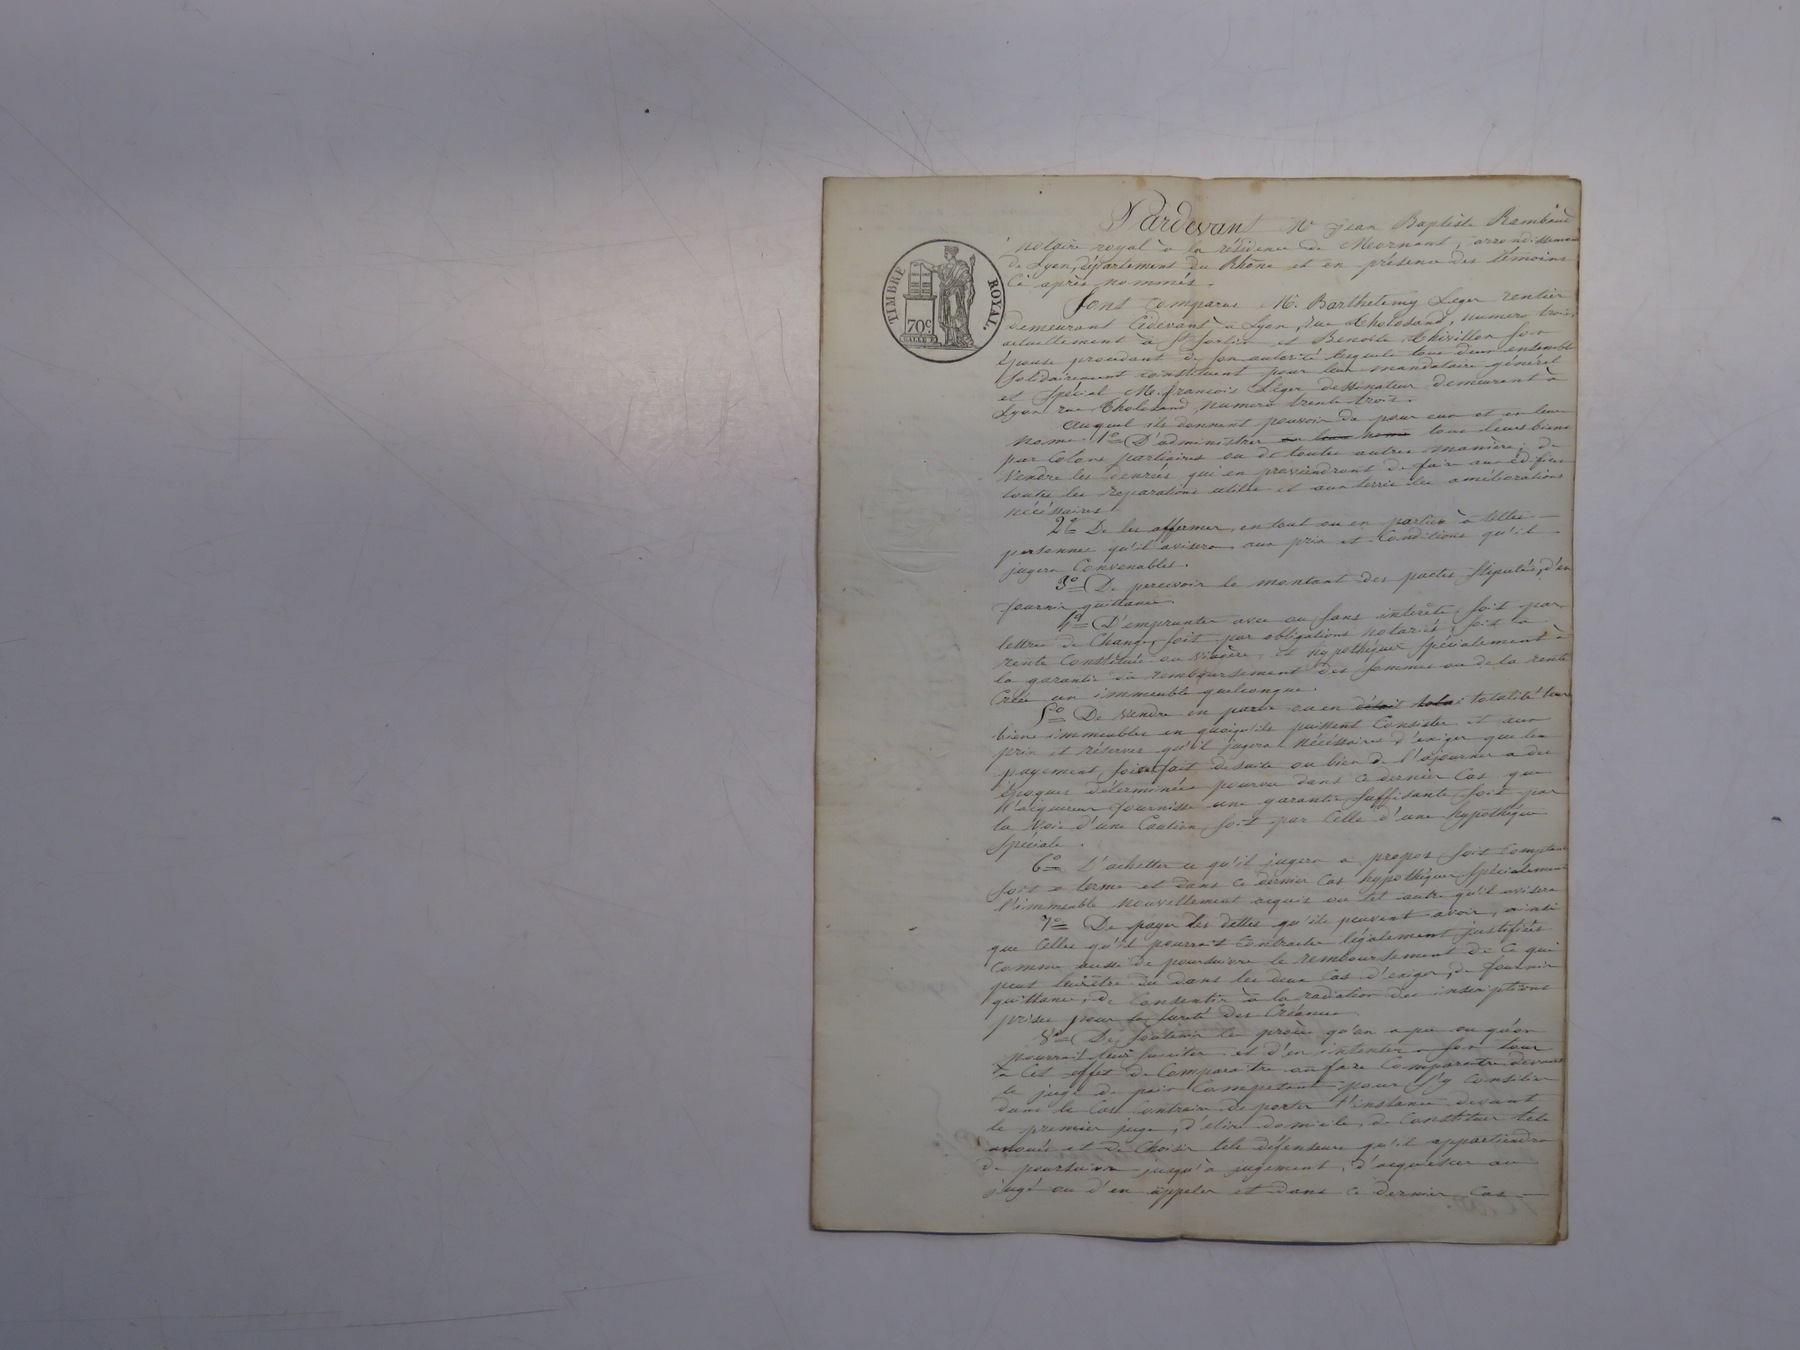 TIMBRE ROYAL.
70c
Pardevant Me Jean Baptiste Rambaud
notaire royal à la résidence de Mornant, arrondissement
de Lyon, département du Rhône et en présence des témoins
Ci après nommés.
Sont Comparus M. Barthelemy Leger rentier
demeurant Cidevant à Lyon, rue Tholosand, numero trois,
actuellement à St Sorlin et Benoite Thivillon son
épouse procédant de son autorité lesquels tous deux ensemble
solidairement constituent pour leur mandataire général
et spécial M. françois Léger dessinateur demeurant à
Lyon rue Tholosand, numero trente trois.
Auquel ils donnent pouvoir de pour eux et en leur
noms 1o D'administrer en leurs noms tous leurs biens
par Colons partiaires ou de toutes autres manière, de
Vendre les denrées qui en proviendront de faire aux édifices
toutes les réparations utiles et aux terres les améliorations
nécéssaires.
2o De les affermer, en tout ou en partie à telles
personnes qu'il avisera aux prix et Conditions qu'il
jugera Convenables.
3o De percevoir le montant des pactes stipulés, d'en
fournir quittance.
4o D'emprunter avec ou sans interêts, soit par
lettres de Change, soit par obligations notariés, soit à
rente Constituée ou viagère, et hypothéquer spécialement à
la garantie du remboursement des sommes ou de la rente
Créée un immeuble quelconque.
5o De Vendre en partie ou en totalité leurs
biens immeubles en quoiqu'ils puissent Consister et aux
prix et réserves qu'il jugera nécéssaires d'exiger que les
payement soient fait desuite ou bien de l'ajourner a des
époques déterminées pourvu dans ce dernier Cas que
l'acquereur fournisse une garantie suffisante soit par
la Voie d'une Caution, soit par Celle d'une hypothèque
spéciale.
6o D'achetter ce qu'il jugera a propos soit Comptant
soit a terme et dans ce dernier Cas hypothéquer spécialement
l'immeuble nouvellement acquis ou tel autre qu'il avisera
7o De payer les dettes qu'ils peuvent avoir, ainsi
que Celles qu'il pourrait Contracter légalement justifiées
Comme aussi de poursuivre le remboursement de Ce qui
peut leur être dû dans les deux Cas d'exiger, de fournir
quittance, de Consentir à la radiation des inscriptions
prises pour la sureté des Créances.
8o De soutenir les procès qu'on a pu ou qu'on
pourrait leur susciter et d'en intenter a son tour
à Cet effet de Comparaitre ou faire Comparaitre devant
le juge de paix Compétent pour s'y Concilier
dans le Cas Contraire de porter l'instance devant
le premier juge, d'élire domicile, de Constituer tels
avoués et de Choisir tels défenseurs qu'il appartiendra
de poursuivre jusqu'à jugement, d'acquiescer au
jugé ou d'en appeler et dans ce dernier Cas